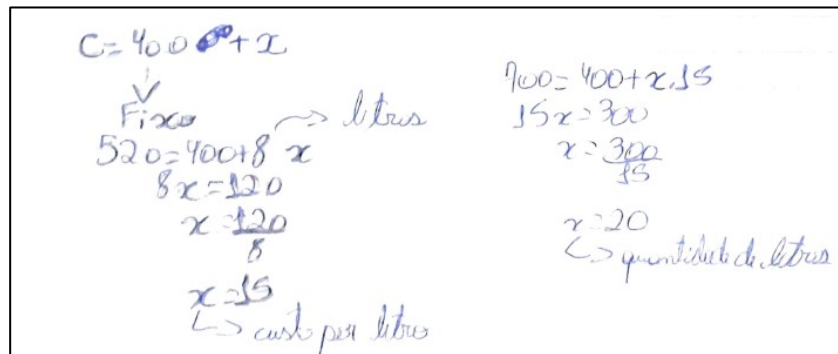 C=400+x
Fixo
520=400+8 x
litros
8x=120
x=120
8
x=15
custo por litro
700=400+x.15
15x=300
x=300
15
x=20
quantidade de litros